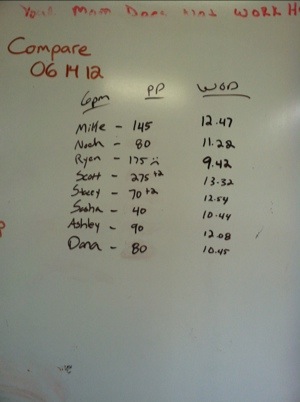 Your Mom Does Not WORK H
Compare
06 14 12
6pm PP WOD
Mike - 145 12.47
Noah - 80 11.28
Ryan - 175 9.42
Scott - 275+2 13.32
Stacey - 70+2 12.54
Sasha - 40 10.44
Ashley - 90 12.08
Dana - 80 10.45